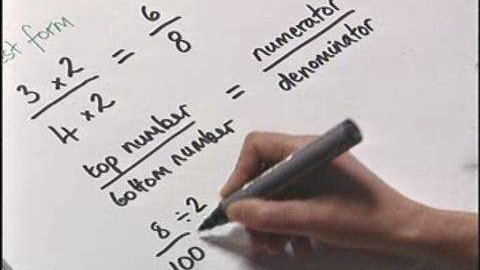 est form
3 × 2 / 4 × 2 = 6 / 8
top number / bottom number = numerator / denominator
8 ÷ 2 / 100